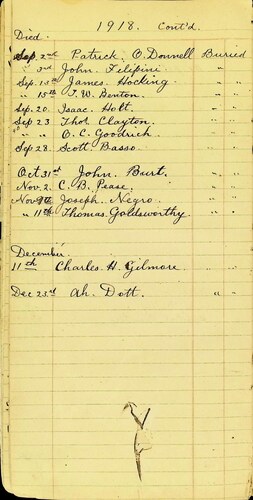 1918. Cont'd.
Died.
Sep. 2nd Patrick. O. Donnell Buried
" 3rd John. Filipini " "
Sep. 13th James. Hocking. " "
" 15th J. W. Benton. " "
Sep. 20. Isaac. Holt. " "
Sep. 23 Thos. Clayton. " "
" " O. C. Goodrich. " "
Sep. 28 Scott Basso. " "
Oct 31st John. Burt. " "
Nov. 2. C. B. Pease. " "
Nov 9th Joseph. Negro. " "
" 11th Thomas. Goldsworthy. " "
December.
11th Charles. H. Gilmore. " "
Dec 23rd Ah. Dott. " "